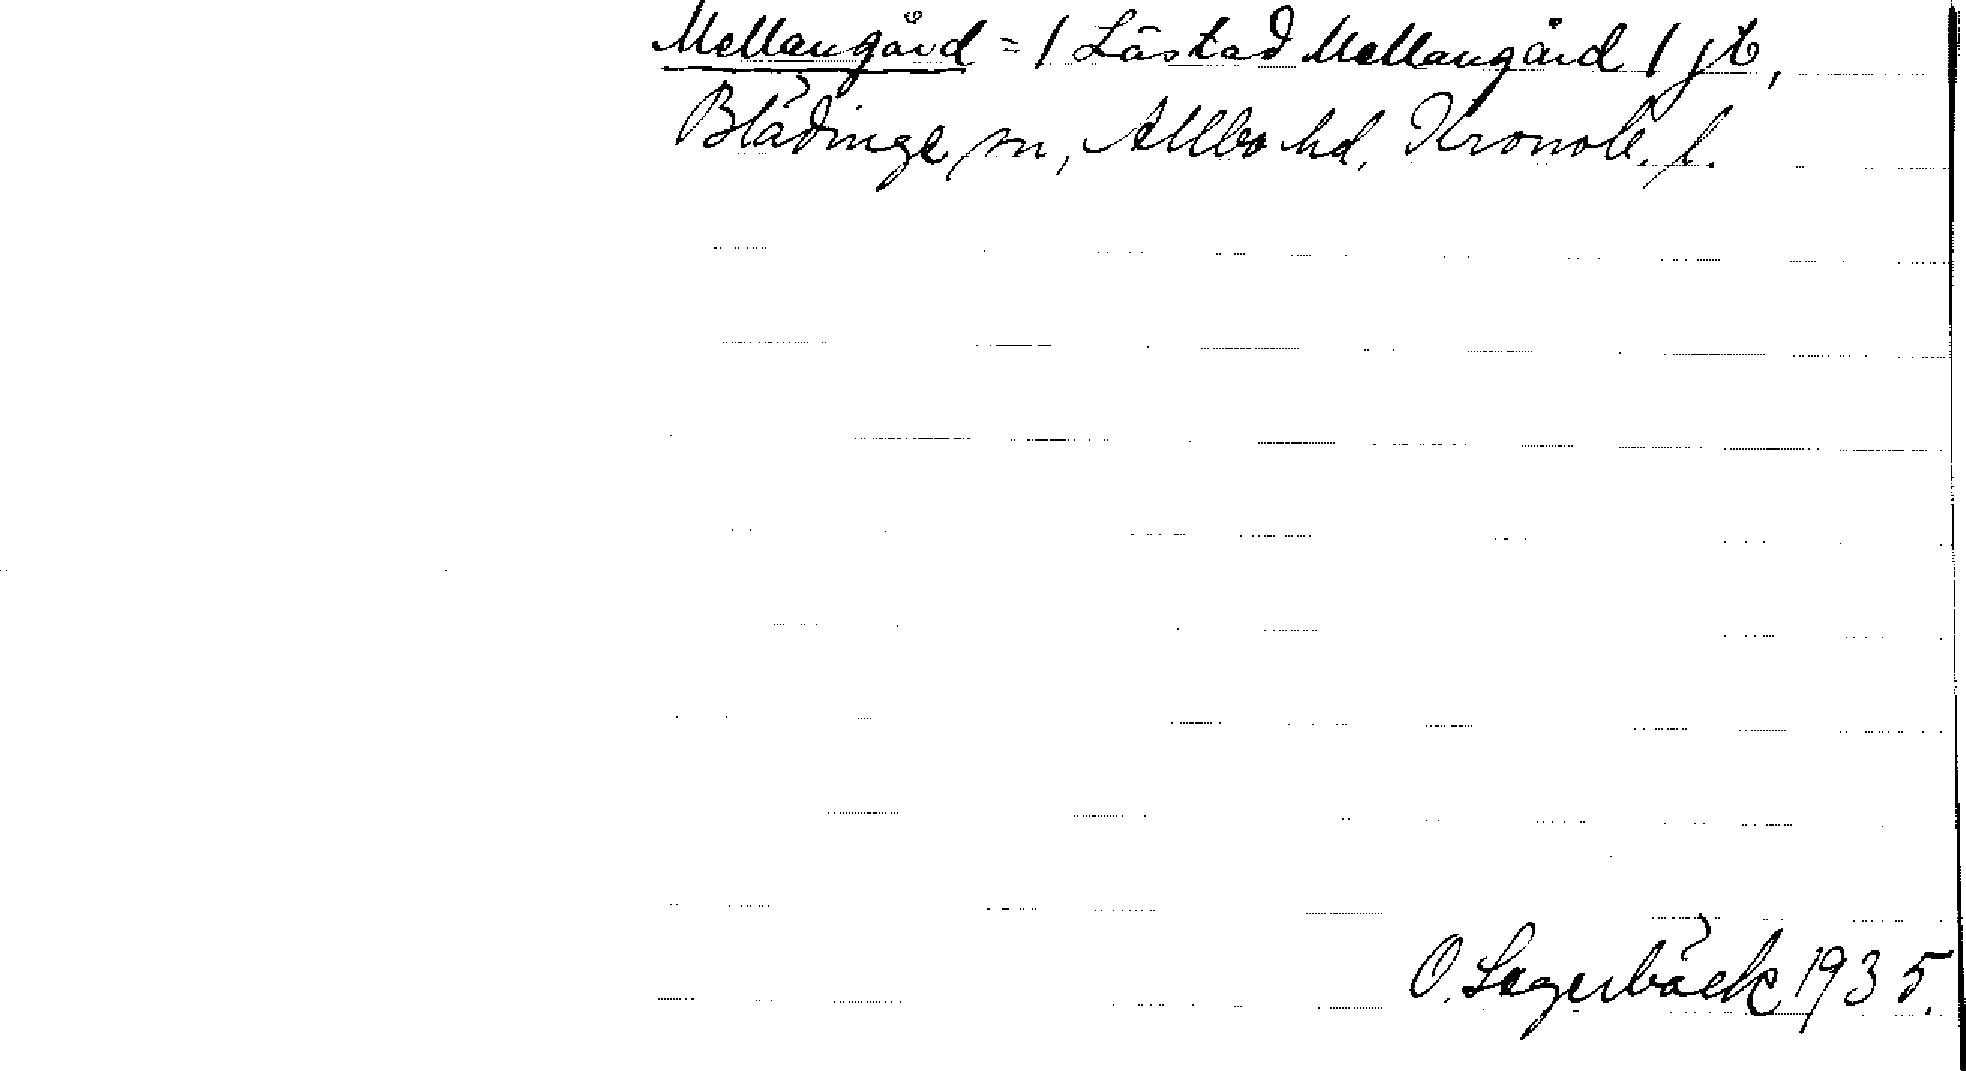 Mellangård = / Låstad Mellangård / jb,
Blädinge sn, Allbo hd, Kronob. l.
O. Lagerbäck 1935.